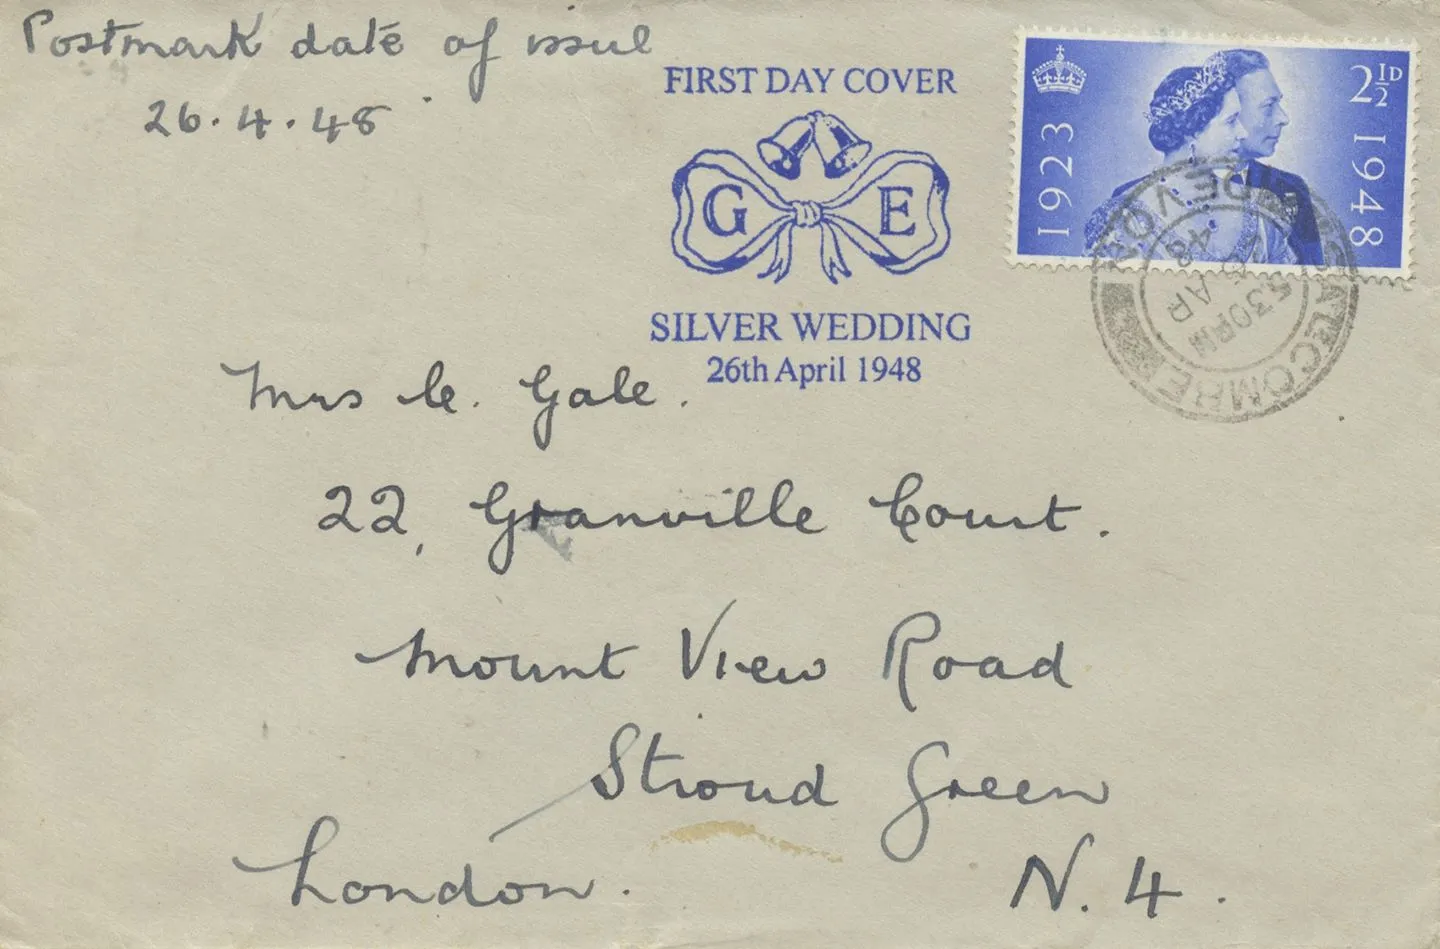 Postmark date of issue
26.4.48
FIRST DAY COVER
G E
SILVER WEDDING
26th April 1948
1923
2½D
1948
ILFRACOMBE
DEVON
5.30PM
AP
48
Mrs C. Gale.
22, Granville Court.
Mount View Road
Stroud Green
London. N.4.